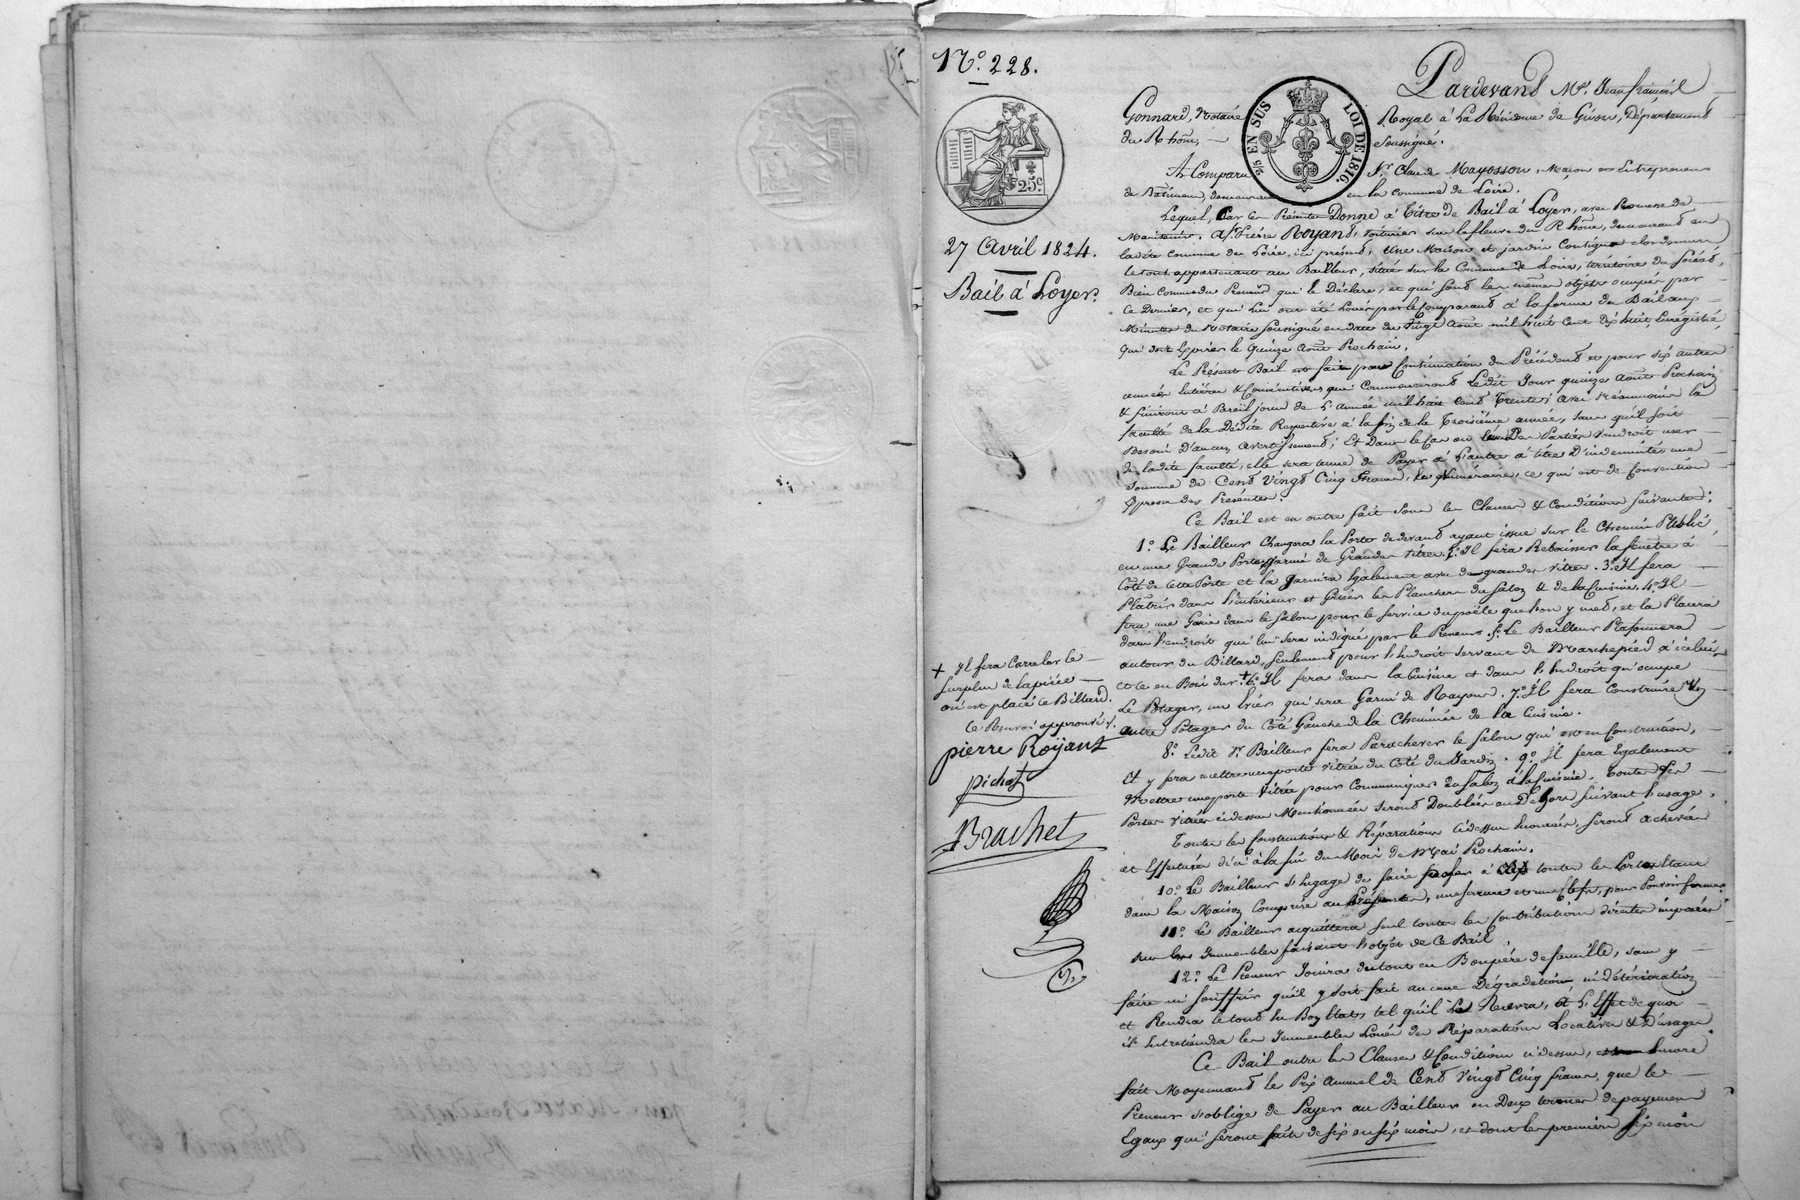 N.° 228.
27 Avril 1824.
Bail à Loyer.
25c
2/5 EN SUS
LOI DE 1816.
Pardevant Me. Jean françois
Gonnard, Notaire Royal à La Résidence de Givors, Département
du Rhône, soussigné.
A Comparu Sr. Claude Mayosson, Maçon Entrepreneur
de Batiment, demeurant en la Commune de Loire.
Lequel, Par les Présentes Donne à Titre de Bail à Loyer, avec Promesse de
Maintenir. A Sr. Pierre Royant, voiturier sur le fleuve du Rhône, demeurant en
ladite Commune de Loire, ici présent, Une Maison et jardin Contigus
le tout appartenant au Bailleur, situé sur la Commune de Loire, territoire du
Bien Connus du Preneur qui le Déclare, et qui sont les mêmes objets occupés par
Ce Dernier, et qui lui ont été Loués par le Comparant à la forme du Bail aux
Minutes du Notaire soussigné en date du Vingt Aout mil huit Cent Dix huit, Enrégistré,
qui doit Expirer le Quinze Aout Prochain.
Le Présent Bail est fait pour Continuation du Précédent et pour six autres
années Entières & Consécutives, qui Commenceront Ledit Jour quinze Aout Prochain
& finiront à Pareil jour de L'Année mil huit Cent Trente; avec néanmoins la
faculté de la Dédite Respective à la fin de la Troisième année, sans qu'il soit
Besoin D'aucun avertissement; Et Dans le Cas où l'une Des Parties voudroit user
de ladite faculté, elle sera tenue de Payer à L'autre à titre D'indemnité, une
somme de Cent Vingt Cinq Francs, En Numéraire, ce qui est de Convention
Expresse des Présentes.
Ce Bail est en outre fait sous les Clauses & Conditions suivantes:
1.° Le Bailleur Changera la Porte de devant ayant issue sur le Chemin Public
en une Grande Porte Garnie de Grandes Vitres. 2.° Il fera Rebaisser la fenêtre à
Côté de Cette Porte et la Garnira Egalement avec de grandes vitres. 3.° Il fera
Platrir dans l'intérieur et Griser les Planchers du Salon & de la Cuisine. 4.° Il
fera une Gaine dans le Salon pour le service du poële que l'on y met, et la Placera
dans l'endroit qui lui sera indiqué par le Preneur. 5.° Le Bailleur Plafonnera
autour du Billard, seulement pour l'Endroit servant de Marchepied à icelui,
et ce en Bois dur. + 6.° Il fera dans la Cuisine et dans l'Endroit qu'occupe
Le Potager, un Evier qui sera Garni de Rayons. 7.° Il fera Construire Un
autre Potager du Coté Gauche de la Cheminée de la Cuisine.
8.° Ledit Sr. Bailleur fera Parachever le Salon qui est en Construction,
Et y fera mettre une porte vitrée du Coté du Jardin. 9.° Il fera Egalement
Mettre une porte Vitrée pour Communiquer du Salon à la Cuisine. Toutes les
Portes vitrées ci dessus Mentionnées seront Doublées en Dehors suivant l'usage.
Toutes les Constructions & Réparations ci dessus Enoncées, seront achevées
et Effectuées d'ici à la fin du Mois de Mai Prochain.
10.° Le Bailleur s'Engage de faire poser à toutes les Portes Etant
dans la Maison Comprise au Présentes, une serrure et une Clef, pour Pouvoir fermer.
11.° Le Bailleur acquittera seul toutes les Contributions directes imposées
sur les Immeubles faisant l'objet de Ce Bail.
12.° Le Preneur Jouira du tout en Bon père de famille, sans y
faire ni souffrir qu'il y soit fait aucune Dégradation, ni détérioration
et Rendra le tout En Bon Etat, tel qu'il Le Recevra, à L'Effet de quoi
il Entretiendra les Immeubles Loués de Réparations Locatives & D'usage.
Ce Bail outre les Clauses & Conditions ci dessus, est Encore
fait Moyennant le Prix annuel de Cent Vingt Cinq francs, que le
Preneur s'oblige de Payer au Bailleur en Deux termes de payement
Egaux qui seront faits de six en six mois, et dont les premiers six mois
+ Il fera Carreler le
surplus de la pièce
où est placé le Billard.
Ce Renvoi approuvé.
pierre Royant
pichat
Brachet